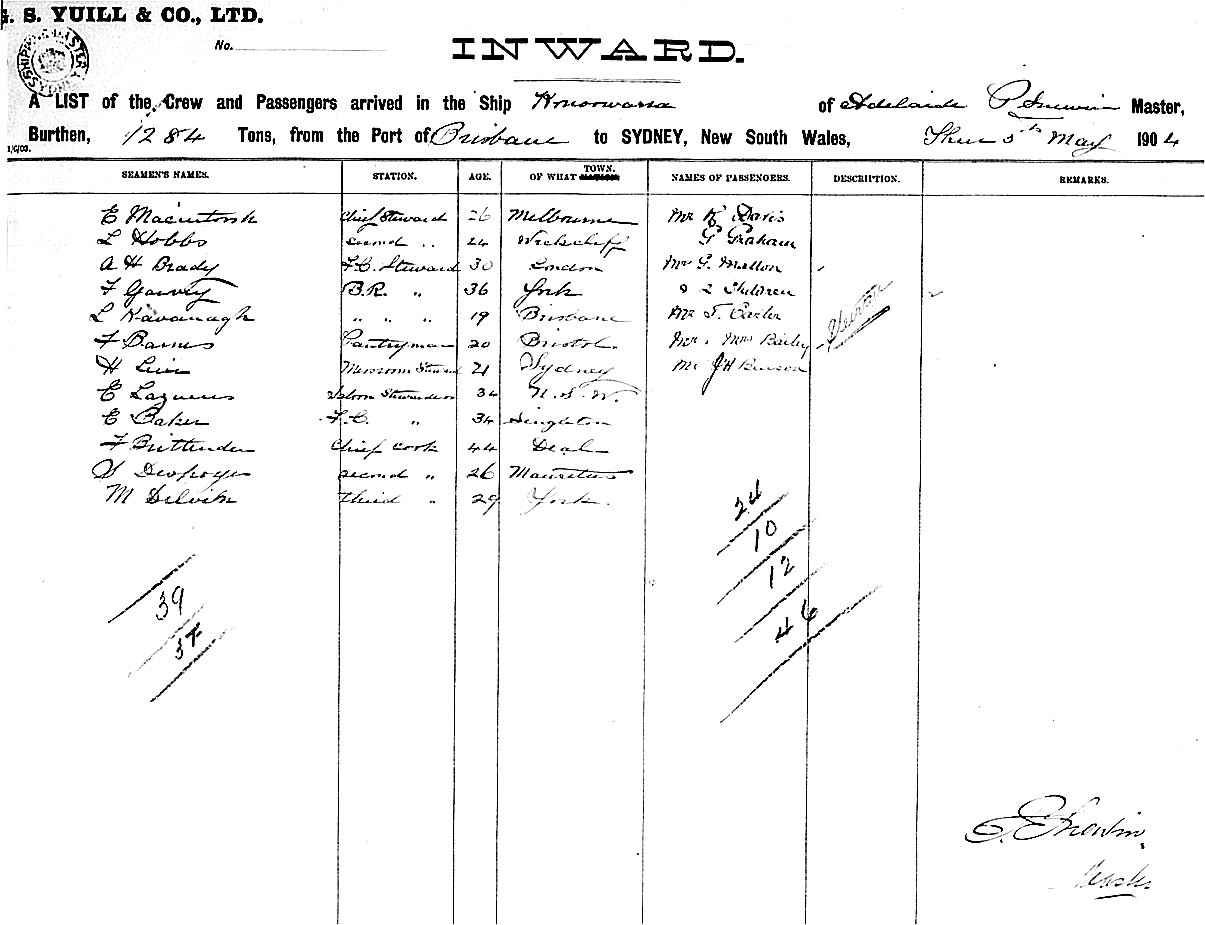 G. S. YUILL & CO., LTD.
No.
INWARD.
A LIST of the Crew and Passengers arrived in the Ship of Adelaide Master,
Burthen, 1284 Tons, from the Port of Brisbane to SYDNEY, New South Wales, Thur 5th May 1904
SEAMEN'S NAMES. STATION. AGE. OF WHAT TOWN. NAMES OF PASSENGERS. DESCRIPTION. REMARKS.
E Macintosh Chief Steward 26 Melbourne Mr K Davis
L Hobbs second " 24 G Graham
A H Brady F.C. Steward 30 London G.
F Garvey B.R. " 36 York & 2 Children
L Kavanagh " " " 19 Brisbane Mr T. Carter
F Barnes Pantryman 20 Bristol Mr & Mrs Bailey
H Messroom Steward 21 Sydney Mr J H
E Lazarus Saloon Stewardess 34 N. S. W.
E Baker F.C. " 34 Singleton
F Brittenden Chief Cook 44 Deal
S second " 26 Mauritius
M third " 29 York.
24
10
12
46
39
37
Master